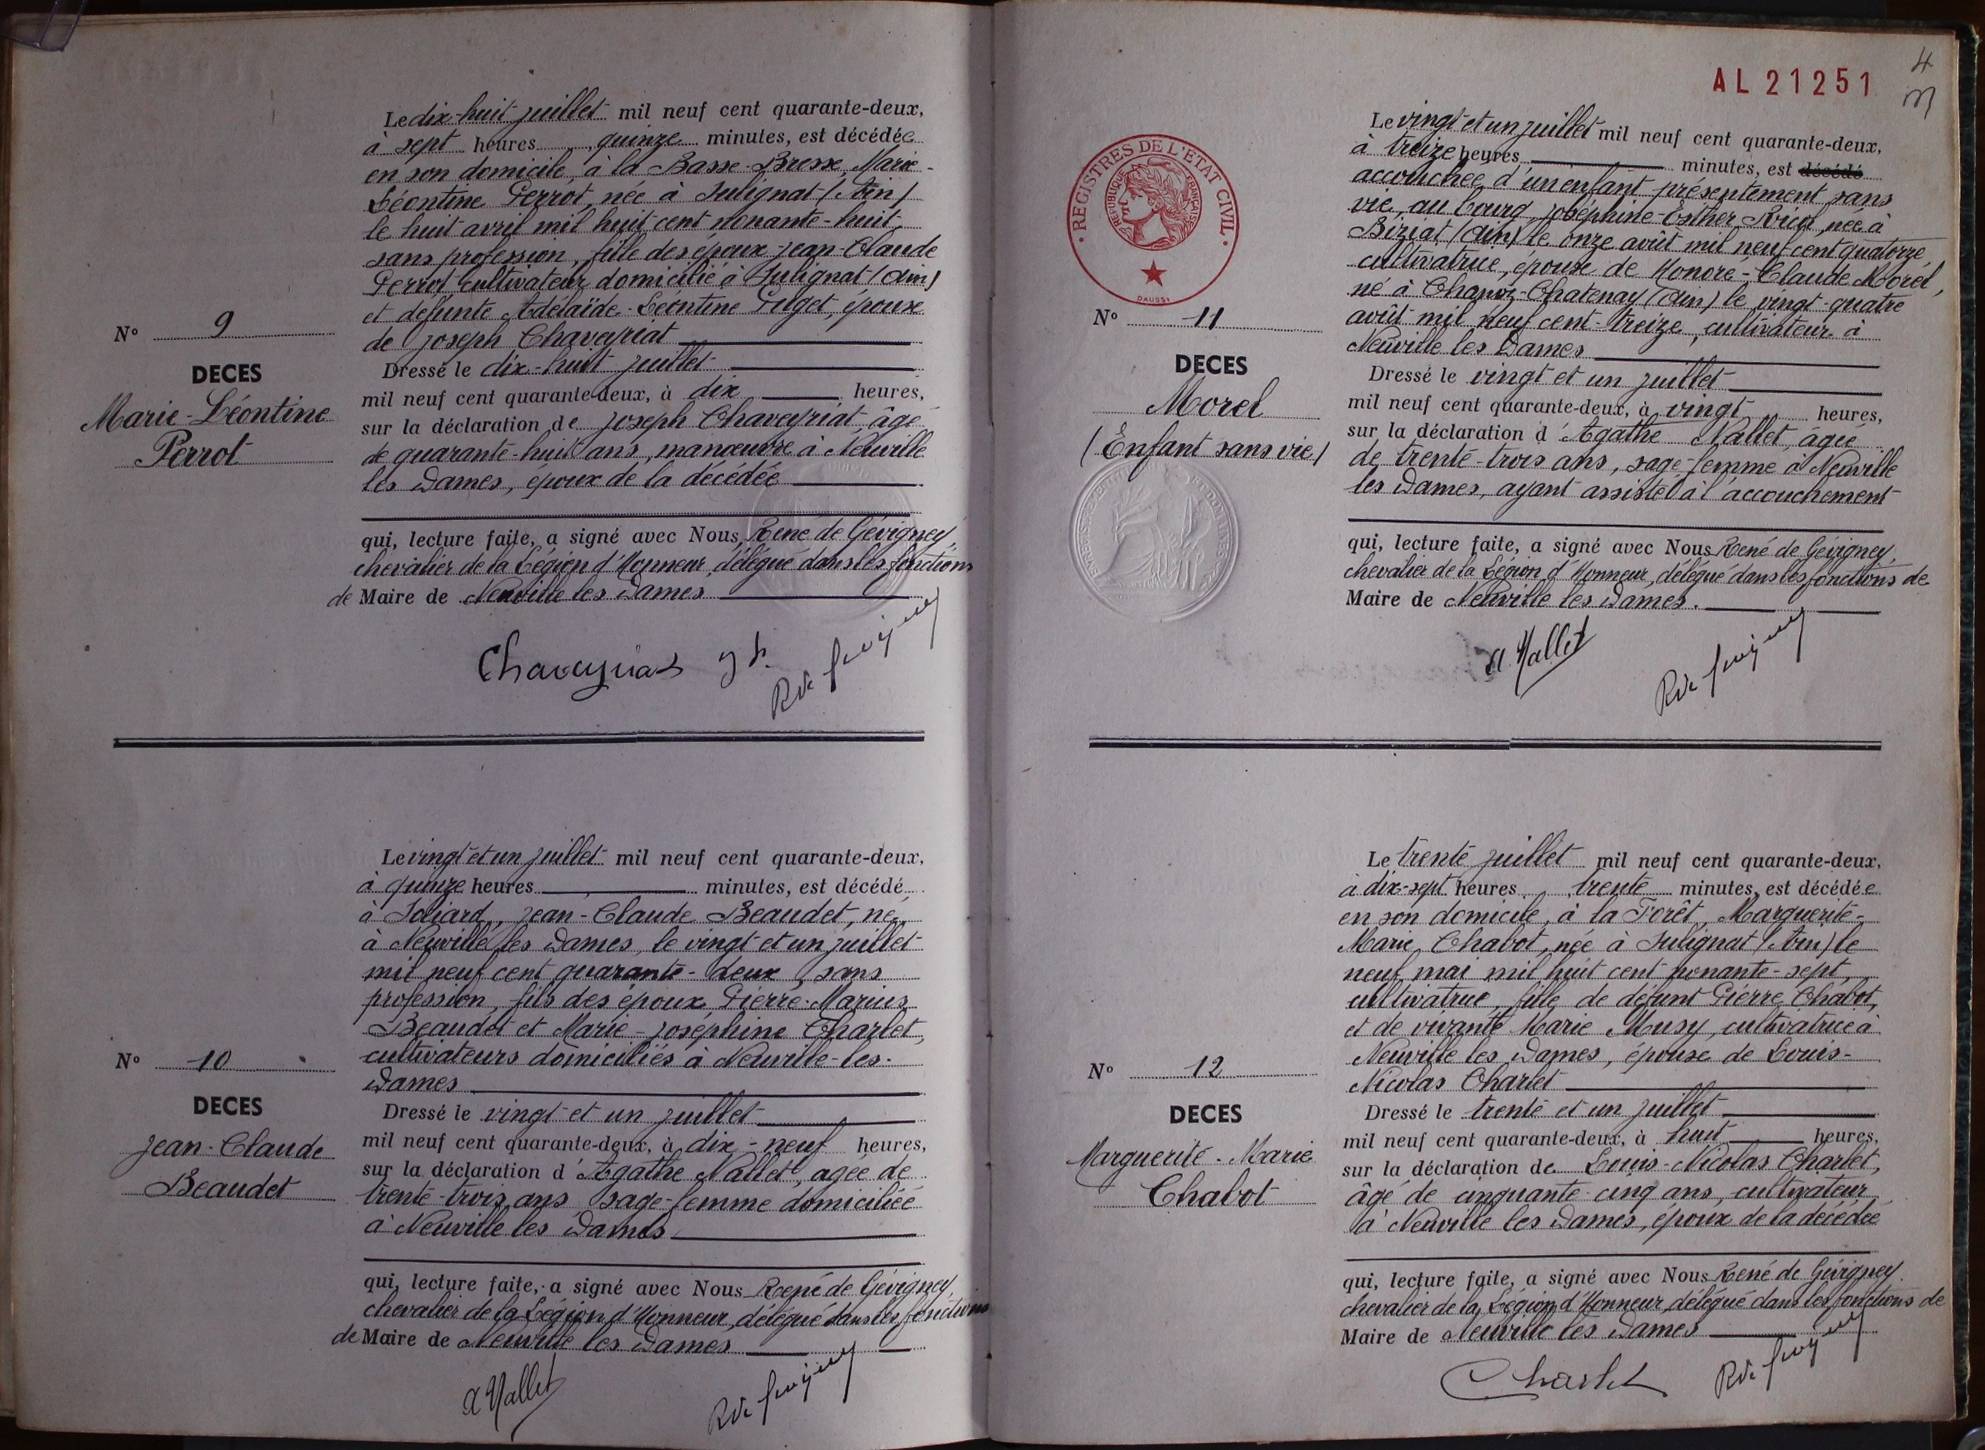 Le dix-huit juillet mil neuf cent quarante-deux,
à sept heures quinze minutes, est décédée
en son domicile, à la Basse-Bresse, Marie-
Léontine Perrot, née à Sulignat (Ain)
le huit avril mil huit cent nonante-huit,
sans profession, fille des époux Jean-Claude
Perrot cultivateur domicilié à Sulignat (Ain)
et défunte Adélaïde-Léontine Puget, épouse
de Joseph Chaveyriat
N° 9
DECES
Marie-Léontine
Perrot
Dressé le dix-huit juillet
mil neuf cent quarante-deux, à dix heures,
sur la déclaration de Joseph Chaveyriat, âgé
de quarante-huit ans, manœuvre à Neuville
les Dames, époux de la décédée
qui, lecture faite, a signé avec Nous, René de Gévigney,
chevalier de la Légion d'Honneur, délégué dans les fonctions
de Maire de Neuville les Dames
Chaveyriat
Le vingt et un juillet mil neuf cent quarante-deux,
à quinze heures minutes, est décédé
à Jean-Claude Beaudet, né
à Neuville les Dames, le vingt et un juillet
mil neuf cent quarante-deux, sans
profession, fils des époux Pierre-Marius
Beaudet et Marie-Joséphine Charlet,
cultivateurs domiciliés à Neuville-les-
Dames
N° 10
DECES
Jean-Claude
Beaudet
Dressé le vingt et un juillet
mil neuf cent quarante-deux, à dix-neuf heures,
sur la déclaration d'Agathe Nallet, agée de
trente-trois ans sage-femme domiciliée
à Neuville les Dames
qui, lecture faite, a signé avec Nous René de Gévigney,
chevalier de la Légion d'Honneur, délégué dans les fonctions
de Maire de Neuville les Dames
A Nallet
4
AL 21251
Le vingt et un juillet mil neuf cent quarante-deux,
à treize heures minutes, est décédé
accouchée d'un enfant présentement sans
vie, au bourg, Joséphine-Esther née à
Biziat (Ain) le onze août mil neuf cent quatorze,
cultivatrice, épouse de Honoré-Claude Morel,
né à Chanoz-Chatenay (Ain) le vingt-quatre
août mil neuf cent-treize, cultivateur à
Neuville les Dames
REGISTRES DE L'ETAT CIVIL
REPUBLIQUE FRANÇAISE
DAUSSY
N° 11
DECES
Morel
(Enfant sans vie)
Dressé le vingt et un juillet
mil neuf cent quarante-deux, à vingt heures,
sur la déclaration d'Agathe Nallet, âgée
de trente-trois ans, sage-femme à Neuville
les Dames, ayant assisté à l'accouchement
qui, lecture faite, a signé avec Nous René de Gévigney,
chevalier de la Légion d'Honneur, délégué dans les fonctions de
Maire de Neuville les Dames.
A. Nallet
Le trente juillet mil neuf cent quarante-deux,
à dix-sept heures trente minutes, est décédée
en son domicile, à la Forêt, Marguerite-
Marie Chabot, née à Sulignat (Ain) le
neuf mai mil huit cent nonante-sept,
cultivatrice, fille de défunt Pierre Chabot,
et de vivante Marie Musy, cultivatrice à
Neuville les Dames, épouse de Louis-
Nicolas Charlet
N° 12
DECES
Marguerite-Marie
Chabot
Dressé le trente et un juillet
mil neuf cent quarante-deux, à huit heures,
sur la déclaration de Louis-Nicolas Charlet,
âgé de cinquante-cinq ans, cultivateur
à Neuville les Dames, époux de la décédée
qui, lecture faite, a signé avec Nous René de Gévigney,
chevalier de la Légion d'Honneur, délégué dans les fonctions de
Maire de Neuville les Dames
Charlet